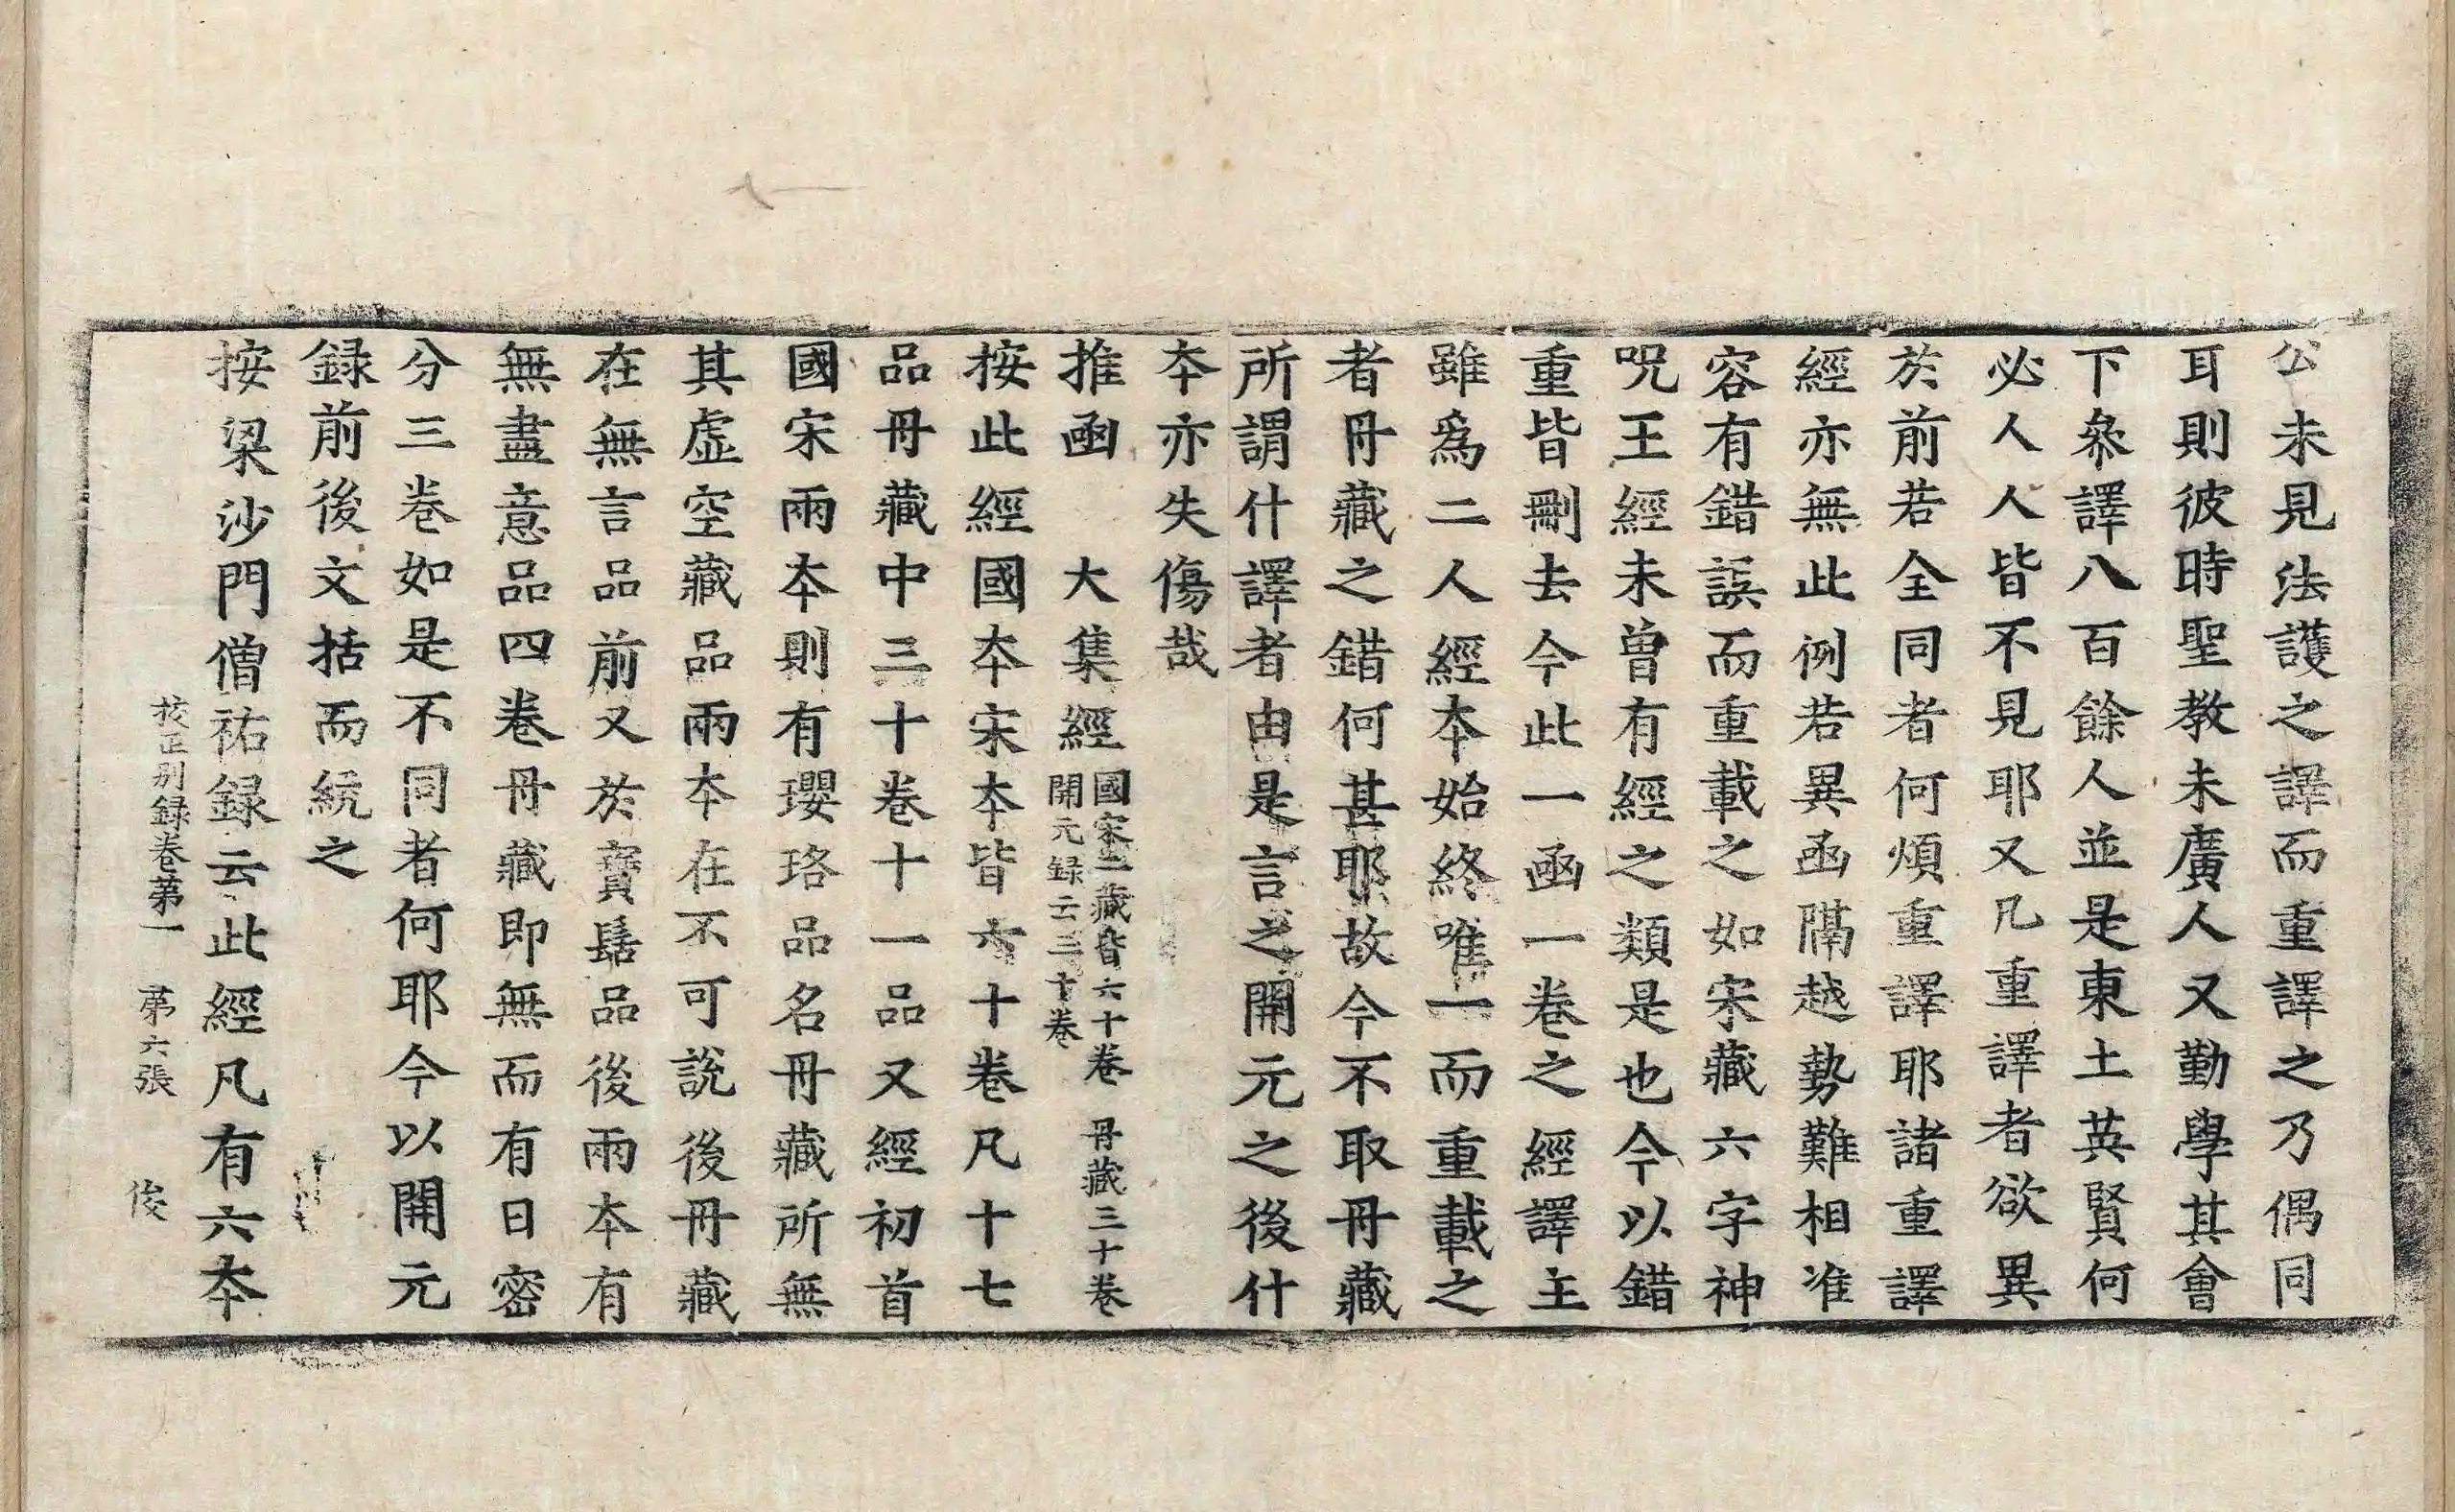 公未見法護之譯而重譯之乃偶同
耳則彼時聖教未廣人又勤學其會
下叅譯八百餘人並是東土英賢何
必人人皆不見耶又凡重譯者欲異
於前若全同者何煩重譯耶諸重譯
經亦無此例若異函隔越勢難相准
容有錯誤而重載之如宋藏六字神
呪王經未曾有經之類是也今以錯
重皆刪去今此一函一卷之經譯主
雖爲二人經本始終唯一而重載之
者丹藏之錯何甚耶故今不取丹藏
所謂什譯者由是言之開元之後什
本亦失傷哉
推函　大集經
國宋二藏皆六十卷　丹藏三十卷
開元録云三十卷
按此經國本宋本皆六十卷凡十七
品丹藏中三十卷十一品又經初首
國宋兩本則有瓔珞品名丹藏所無
其虛空藏品兩本在不可說後丹藏
在無言品前又於寶髻品後兩本有
無盡意品四卷丹藏即無而有日密
分三卷如是不同者何耶今以開元
録前後文括而統之
按梁沙門僧祐録云此經凡有六本
校正別録卷第一　第六張　俊